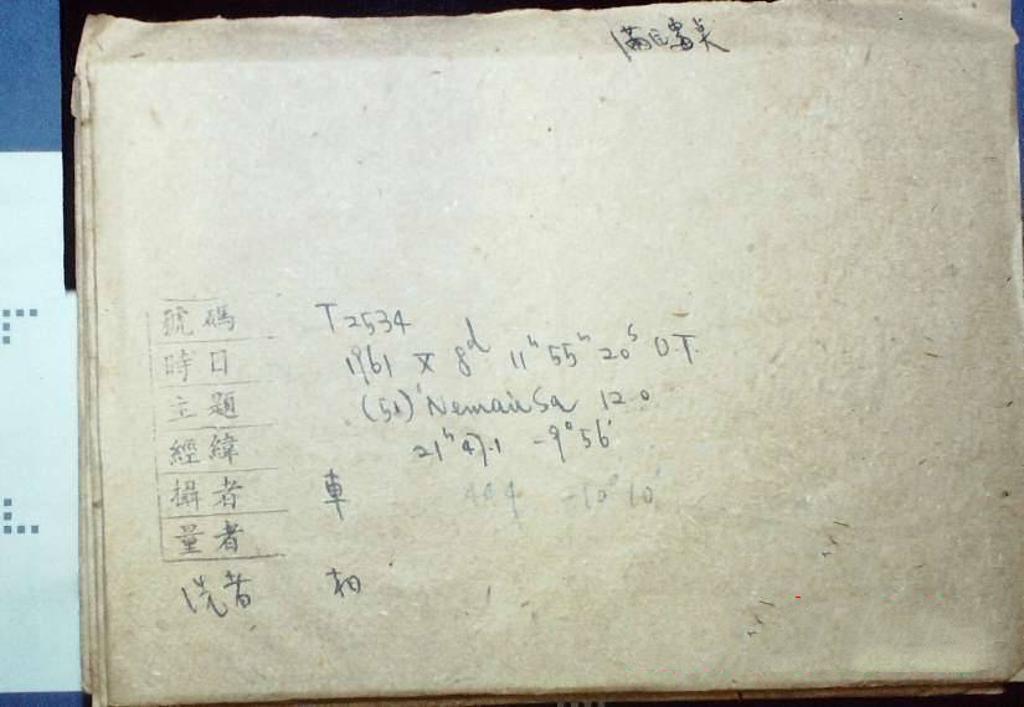 號碼 T2534
時日 1961 X 8d 11h 55m 20s U.T.
主題 (51) Nemausa 12.0
經緯 21h 47.1 -9°56'
攝者 車 464 -10°10'
量者
洗者 柏